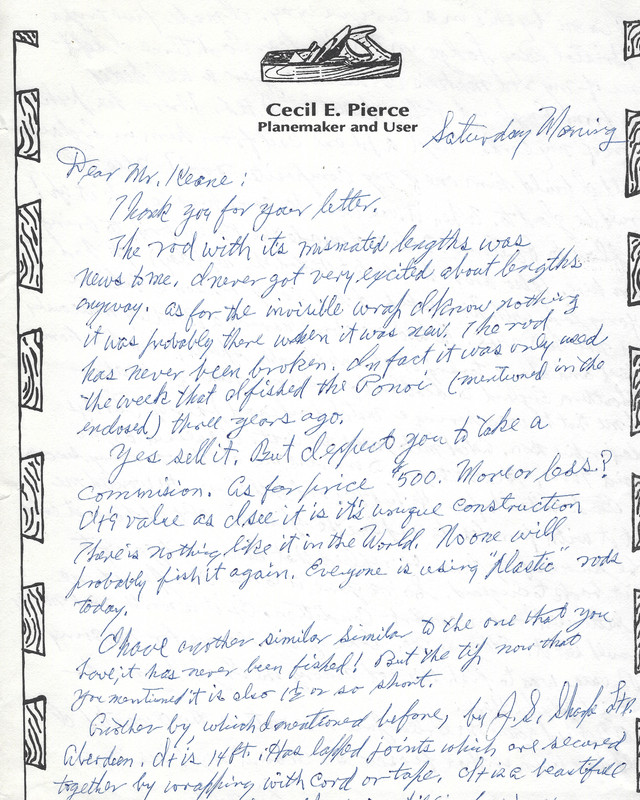 Cecil E. Pierce
Planemaker and User
Saturday Morning
Dear Mr. Keane:
Thank you for your letter.
The rod with its mismated lengths was
news to me. I never got very excited about lengths
anyway. As for the invisible wrap I know nothing
it was probably there when it was new. The rod
has never been broken. In fact it was only used
the week that I fished the Ponoi (mentioned in the
enclosed) three years ago.
Yes sell it. But I expect you to take a
commision. As for price $500. More or less?
It's value as I see it is it's unique construction
There is nothing like it in the World. No one will
probably fish it again. Everyone is using "plastic" rods
today.
I have another similar similar to the one that you
have, it has never been fished! But the tip now that
you mentioned it is also 1½ or so short.
Another by which I mentioned before, by J. S. Sharpe Ltd.
Aberdeen. It is 14 ft. Has lapped joints which are secured
together by wrapping with cord or tape. It is a beautiful